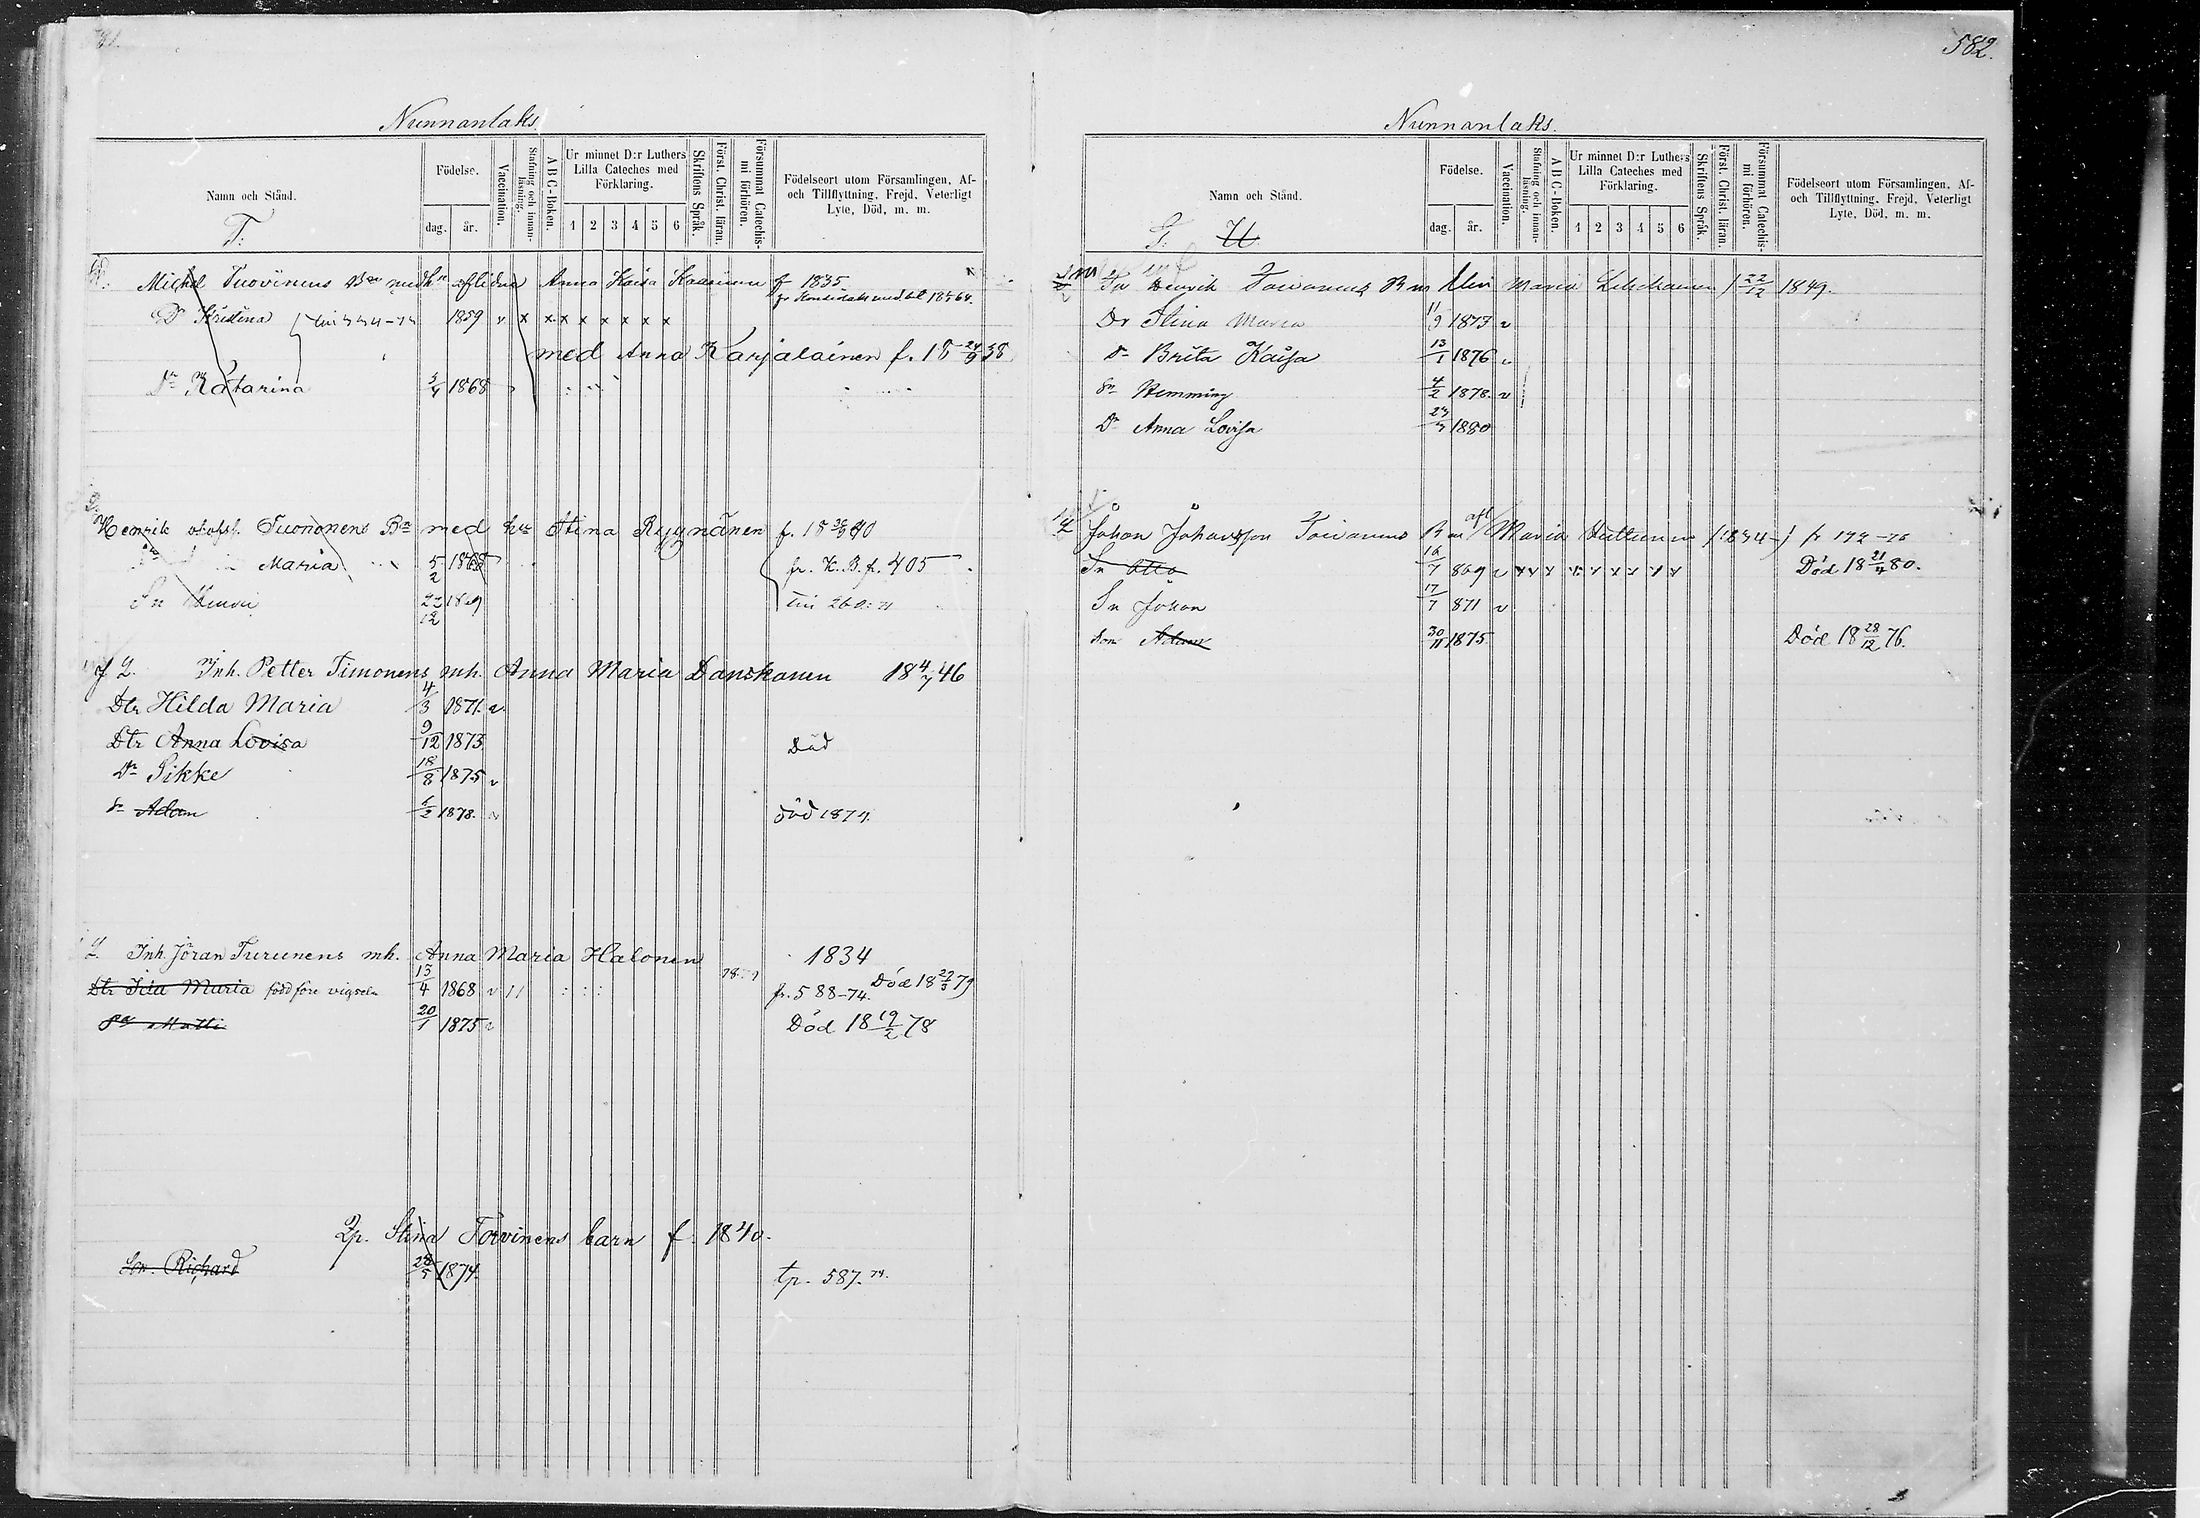 Nunnanlaks.
Namn och Stånd.
T:
Födelse.
dag. år.
Vaccination.
Stafning och innanläsning.
A B C-Boken.
Ur minnet D:r Luthers Lilla Cateches med Förklaring.
1 2 3 4 5 6
Skriftens Språk.
Först. Christ. läran.
Försummat Catechismi förhören.
Födelseort utom Församlingen, Af- och Tillflyttning, Frejd, Veterligt Lyte, Död, m. m.
Michel Tuovinens Bn med hn aflidne Anna Kaisa f 1835
Dr Kristina 1859 v x x x x x x x x
med Anna Karjalainen f. 18 24/9 38
Dr Katarina 1868
Henrik Tuononens Bn med hn Stina Ryynänen
Maria 5/2 1868 fr. K. B. p. 405
Sn Henrik 1869
Inh. Petter Timonens mh. Anna Maria Danskanen 18 4/7 46
Dtr Hilda Maria 4/3 1871. v
Dtr Anna Lovisa 9/12 1873 Död
Dr Sikke 18/8 1875 v
Sn Adam 1878. v död 1879.
Inh. Jöran Turunens mh. Anna Maria Halonen 1834
Dtr Ida Maria född före vigseln 13/4 1868 v fr. 588-74. Död 18 79
Sn Matti 20/1 1875 v Död 18 19/2 78
Stina Torvinens barn f. 1840.
Son. Richard 1874. tp. 587. 74.
582.
Nunnanlaks.
Namn och Stånd.
T: U
Födelse.
dag. år.
Vaccination.
Stafning och innanläsning.
A B C-Boken.
Ur minnet D:r Luthers Lilla Cateches med Förklaring.
1 2 3 4 5 6
Skriftens Språk.
Först. Christ. läran.
Försummat Catechismi förhören.
Födelseort utom Församlingen, Af- och Tillflyttning, Frejd, Veterligt Lyte, Död, m. m.
Henrik Toivanens B m Maria 22/12 1849.
Dr Stina Maria 11/9 1873 v
Dr Brita Kaisa 13/1 1876 v
Sn Hemming 4/2 1878. v
Dr Anna Lovisa 1880
Johan Johansson Toivanens B m Maria
Sn Otto 16/7 869 v Död 18 21/4 80.
Sn Johan 17/7 871 v
Son Adam 30/11 1875 Död 18 28/12 76.